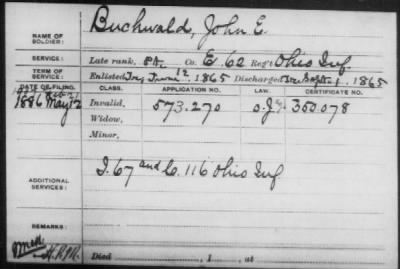 NAME OF SOLDIER: Buchwald, John E.
SERVICE: Late rank, Pt. Co. E. 62 Reg't Ohio Inf
TERM OF SERVICE: Enlisted June 12, 1865 Discharged Sept 1, 1865
DATE OF FILING. CLASS. APPLICATION NO. LAW. CERTIFICATE NO.
1886 May 12 Invalid, 573.270 350.078
Widow,
Minor,
ADDITIONAL SERVICES: I. 67 and C. 116 Ohio Inf
REMARKS:
Died , 1 , at